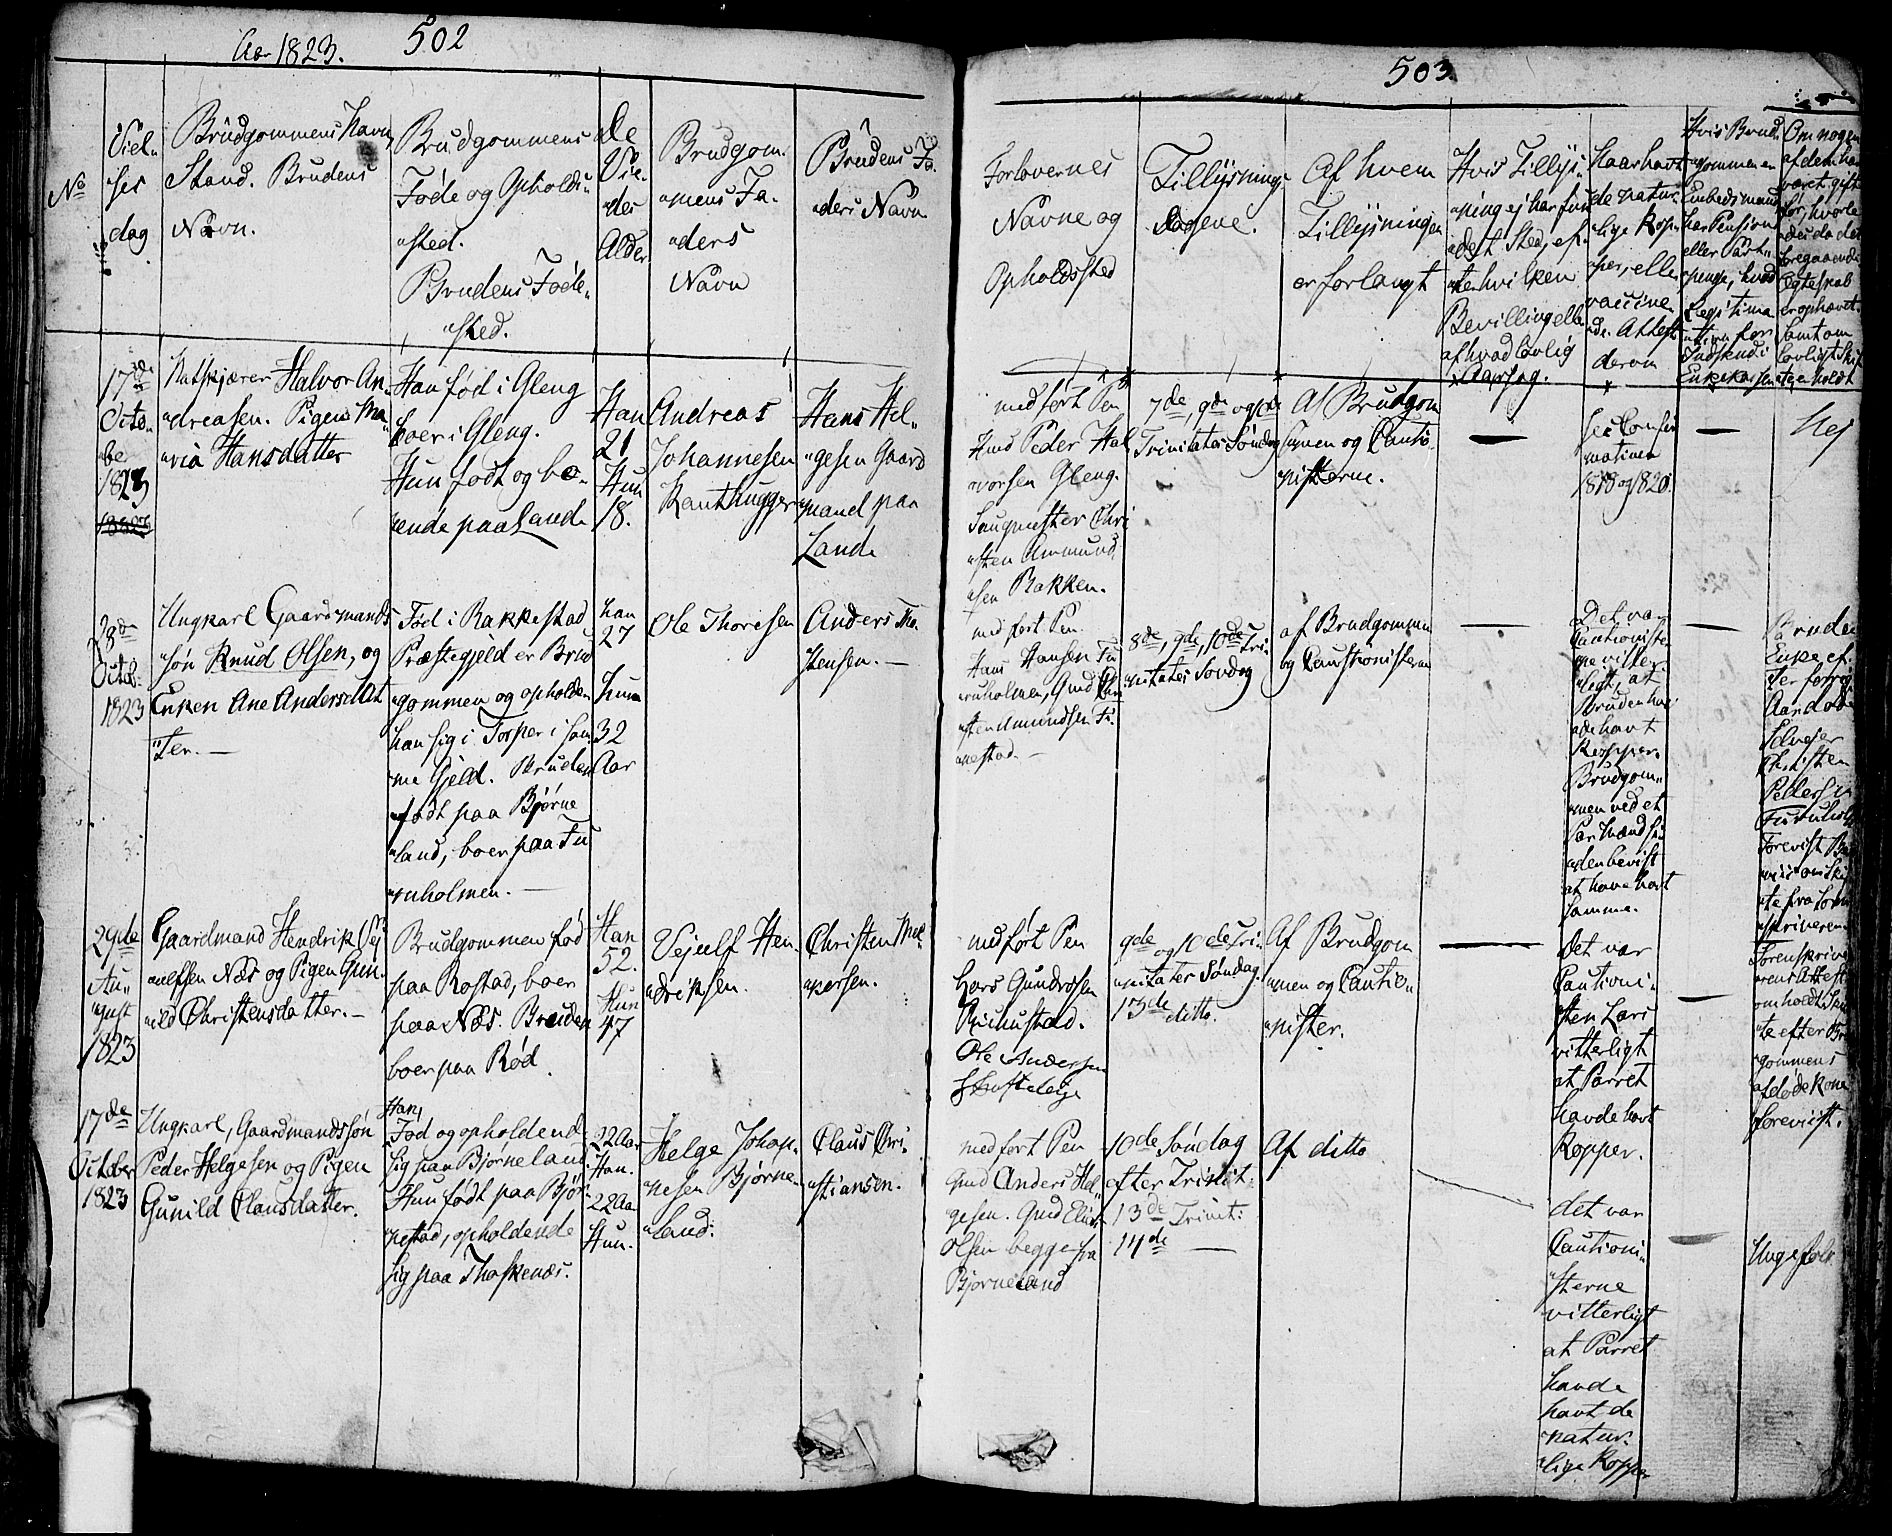 Aar 1823.
502
No
Viel-
ses
dag
Brudgommens Navn,
Stand. Brudens
Navn.
Brudgommens
Føde og Opholds-
"sted.
Brudens Føde-
"sted.
De
Vie-
"des
Alder
Brudgom-
"mens Fa-
"ders
Navn
Brudens Fa-
"ders Navn
17de
Octo-
"be
1823
Halvor An-
"dreasen. Pigen Ma-
"ria Hansdatter
Han fød i Gleng
boer i Gleng.
Hun født og bo-
"ende paa Lande
Han
21
Hun
18.
Andreas
Johannesen
Hans Hel-
"gesen Gaard
"mand paa
Lande
28de
Octob.
1823
Ungkarl Gaardmands
"søn Knud Olsen, og
Enken Ane Andersdat
"ter. —
Fød i Rakkestad
Præstegjeld er Brud
"gommen og opholder
han sig i Torper i sam-
"me Gjeld. Bruden
"født paa Bjørne
"land, boer paa Fu
"ruholmen. —
han
27
hun
32
Aar
Ole Thoresen
Anders Tho-
"stensen. —
29de
Au-
"gust
1823
Gaardmand Hendrik Vej
"nelsen Næs og Pigen Gun-
"ild Christensdatter. —
Brudgommen fød
paa Rostad, boer
paa Næs. Bruden
boer paa Rød.
Han
52.
Hun
47
Vejulf Hen-
"driksen.
Christen
17de
October
1823
Ungkarl, Gaardmandssøn
Peder Helgesen og Pigen
Gunild Clausdatter.
Han
Fød og opholdend
sig paa Bjørneland
Hun født paa Bjør-
"nestad, opholdende
sig paa Thaskenæs.
22 Aar
Han.
22 Aar
Hun.
Helge Johan-
"nesen Bjørne-
"land.
Claus Chri-
"stiansen.
503.
Forlovernes
Navne og
Opholdssted
Tillysnings-
dagene.
Af hvem
Tillysningen
er forlangt
Hvis Tillys-
"ning ej har fun
"det Sted, ef-
"ter hvilken
Bevilling elle
af hvad lovlig
Aarsag.
Har havt
de natur-
"lige Kop-
"per, eller
vaccine
"de. Attest
derom
Hvis Brud-
"gommen er
Embedsmand
har Pension
eller Vart-
"penge, hvad
Legitima
"tion for
Indskud i
Enkekassen
Om nogen
af dem har
været gift
før, hvorle
"des da det
foregaaende
Ægteskab
er ophævet
samt om
lovligt Skif
"te holdt
med ført Pen
Gmd Peder Hal
"vorsen Gleng.
Saugmester Chri
"sten Ammund
"sen Bakken.
7de, 9de og 10de
Trinitatis Søndag
Af Brudgom
"men og Cautio-
"nisterne.
—
See Confir
"mationen
1818 og 1820.
—
Nej
med ført Pen
Hans Hansen Fu
"ruholmen, Gmd Chri
8de, 9de, 10de Tri-
"nitatis Søndag
af Brudgommen
og Cautionisterne
—
Det var
Cautioniste
"ne vitter-
"ligt, at
Bruden hav
"de havt
Kopper.
Brudgom-
"men ved et
at have havt
samme.
—
Bruden
Enke ef-
Selvejer
Christen
Pedersen
Furuhol
Forevist
med ført Pen
Lars Gundrosen
Ole Andersen
9de og 10de Tri-
"nitatis Søndag.
13de ditto.
Af Brudgom
"men og Cautio-
"nister.
—
Det var
Cautioni-
"sten Lars
vitterligt
at Parret
havde havt
Kopper.
—
Attest
om holdt Skif
"te efter Brud
"gommens
afdøde Kone
forevist.
med ført Pen
Gmd Anders Hel-
"gesen. Gmd
Olsen begge fra
Bjørneland
10de Søndag
efter Trinit:
13de Trinit:
14de —
Af ditto
det var
Cautioni-
"sterne
vitterligt
at Parret
havde
havt de
natur-
"lige Kopper
—
Unge folk